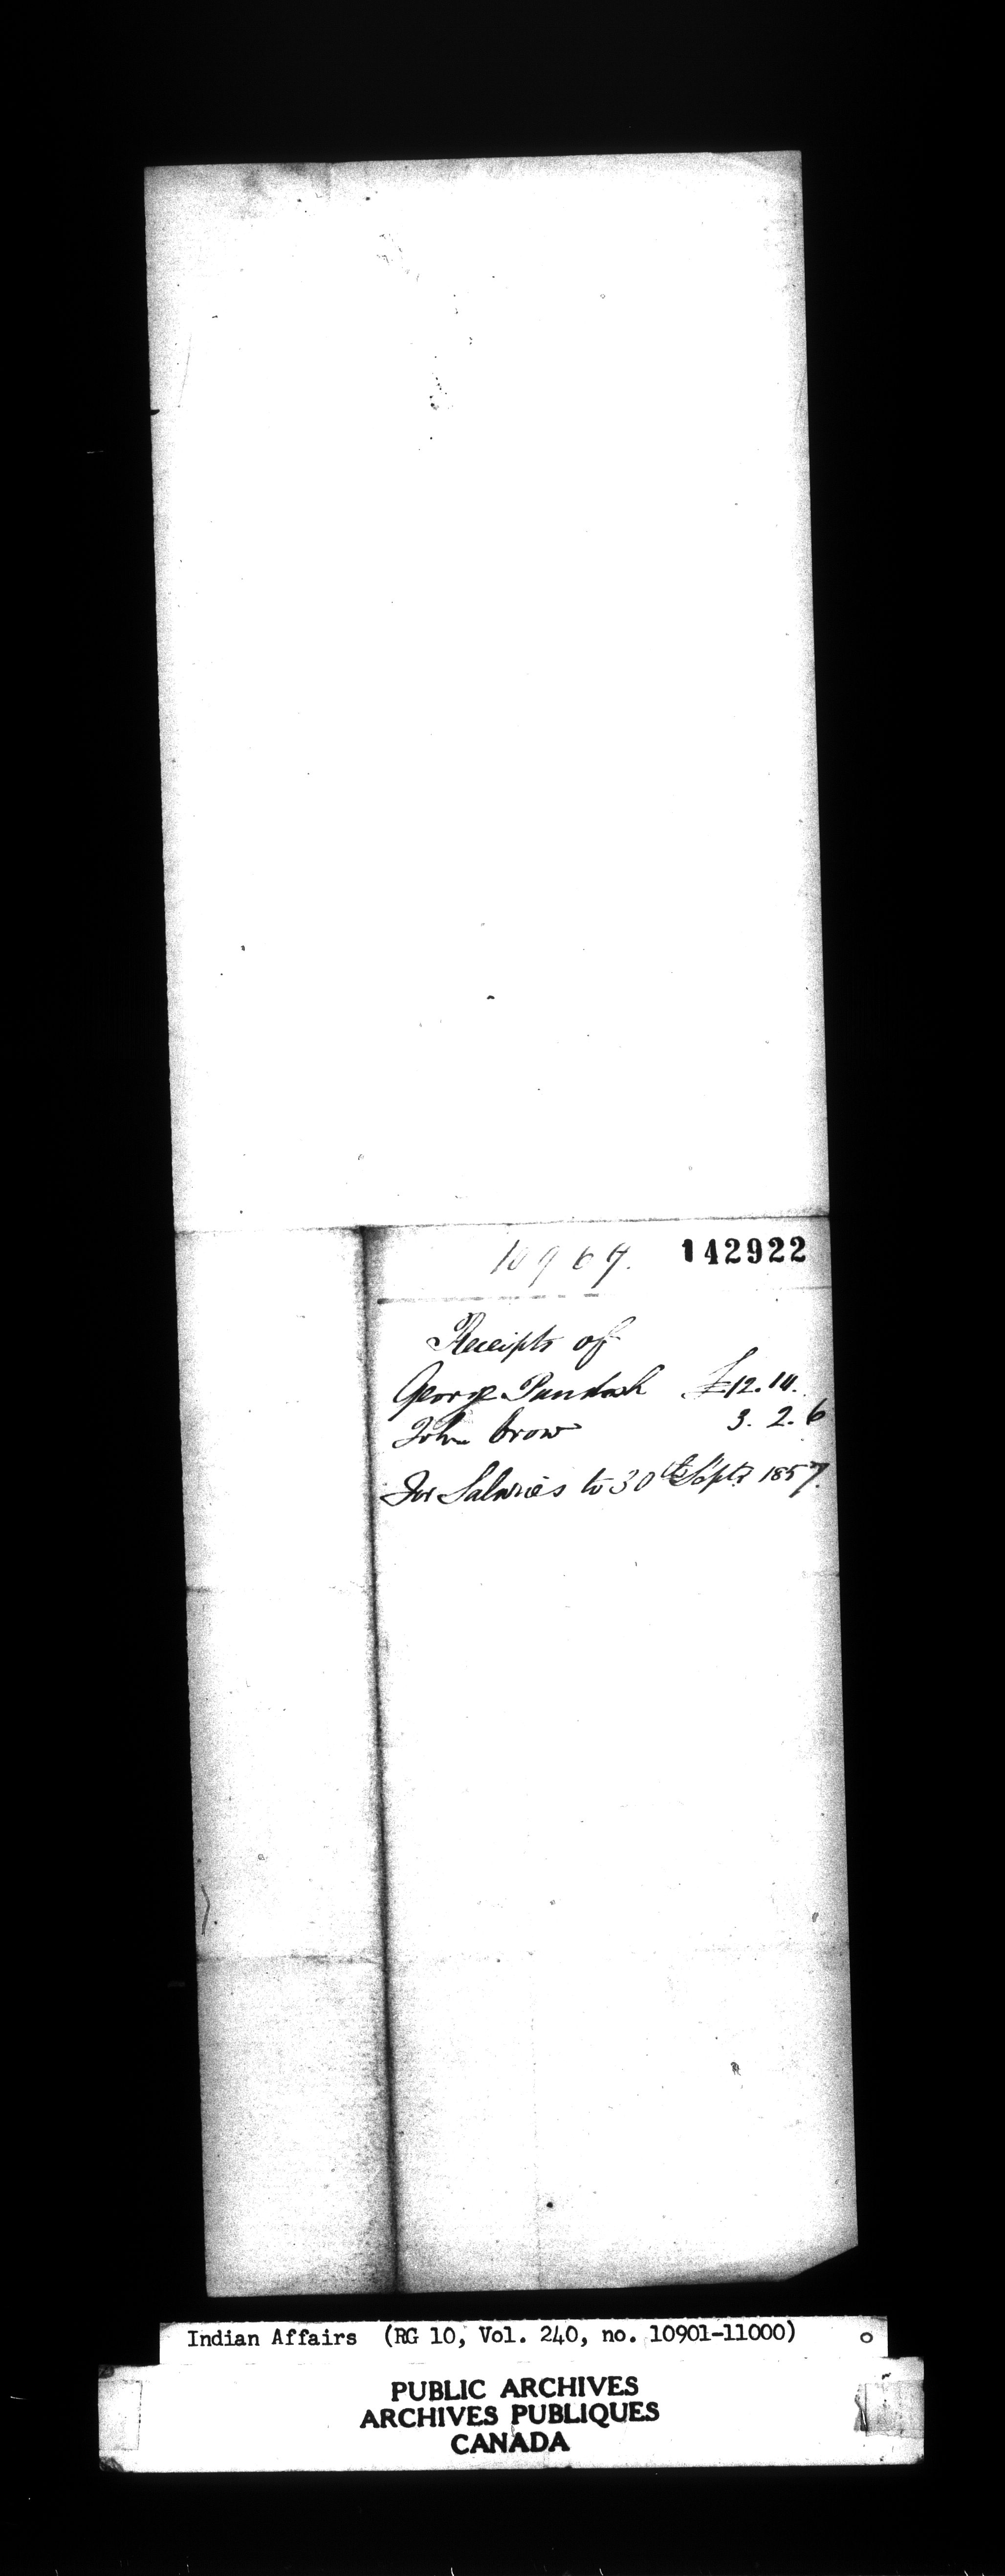 10967. 142922
Receipts of
George Paudash £12.10.
John Crow 3. 2. 6
For Salaries to 30th Septr 1857.
Indian Affairs (RG 10, Vol. 240, no. 10901-11000)
PUBLIC ARCHIVES
ARCHIVES PUBLIQUES
CANADA